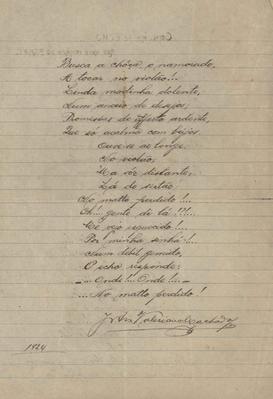 Busca a chóça, o namorado,
A tocar no violão!..
Linda modinha dolente,
Num anceio de desejos,
Promessas de affecto ardente,
Que só acalma com beijos.
Ouve-se ao longe
Do violão,
A vóz distante,
Lá do sertão
Do matto perdido!...
Oh! gente de lá!!!...
Por minha senhá...
Num debil gemido,
O echo responde:
-...Onde!..Onde!...-
...No matto perdido!
Valeriano Machado
1924